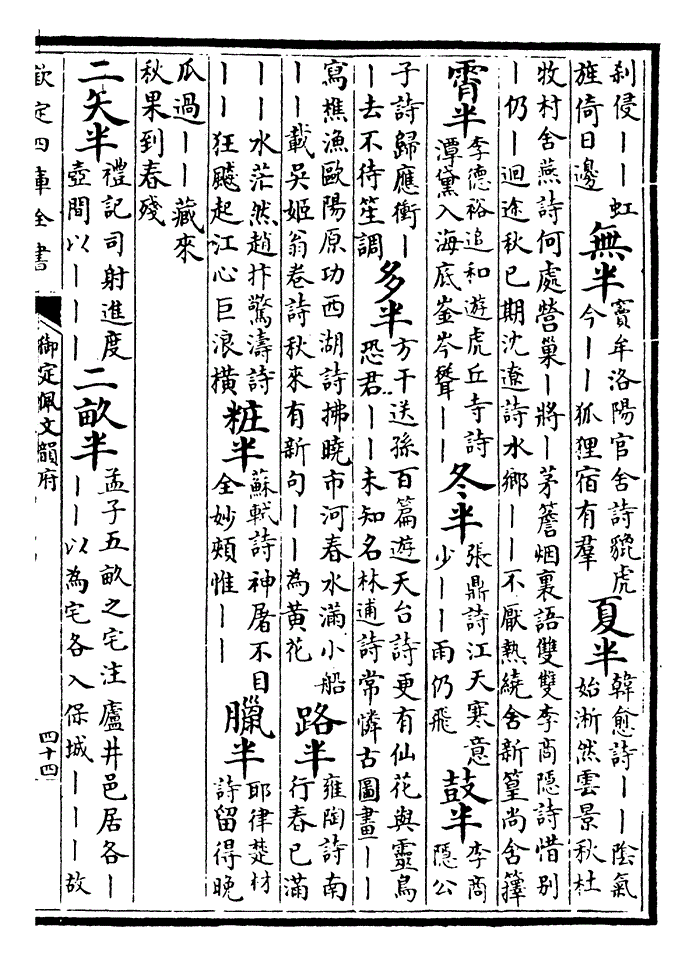 刹侵丨丨虹
旌倚日邊
無半
竇牟洛陽官舍詩貔虎
今丨丨狐狸宿有羣
夏半
韓愈詩丨丨陰氣
始淅然雲景秋杜
牧村舍燕詩何處營巢丨將丨茅簷烟裏語雙雙李商隱詩惜别
丨仍丨迴途秋已期沈遼詩水鄉丨丨不厭熱繞舍新篁尚含籜
霄半
李德裕追和遊虎丘寺詩
潭黛入海底崟岑聳丨丨
冬半
張鼎詩江天寒意
少丨丨雨仍飛
鼓半
李商
隱公
子詩歸應衝丨
丨去不待笙調
多半
方干送孫百篇遊天台詩更有仙花與靈鳥
恐君丨丨未知名林逋詩常憐古圖畫丨丨
寫樵漁歐陽原功西湖詩拂曉市河春水滿小船
丨丨載吳姬翁卷詩秋來有新句丨丨為黄花
路半
雍陶詩南
行春已滿
丨丨水茫然趙抃驚濤詩
丨丨狂飈起江心巨浪橫
粧半
蘇軾詩神屠不目
全妙頰惟丨丨
臘半
耶律楚材
詩留得晚
瓜過丨丨藏來
秋果到春殘
二矢半
禮記司射進度
壺間以丨丨丨
二畝半
孟子五畝之宅注廬井邑居各丨
丨丨以為宅各入保城丨丨丨故
欽定四庫全書
御定佩文韻府
四十四